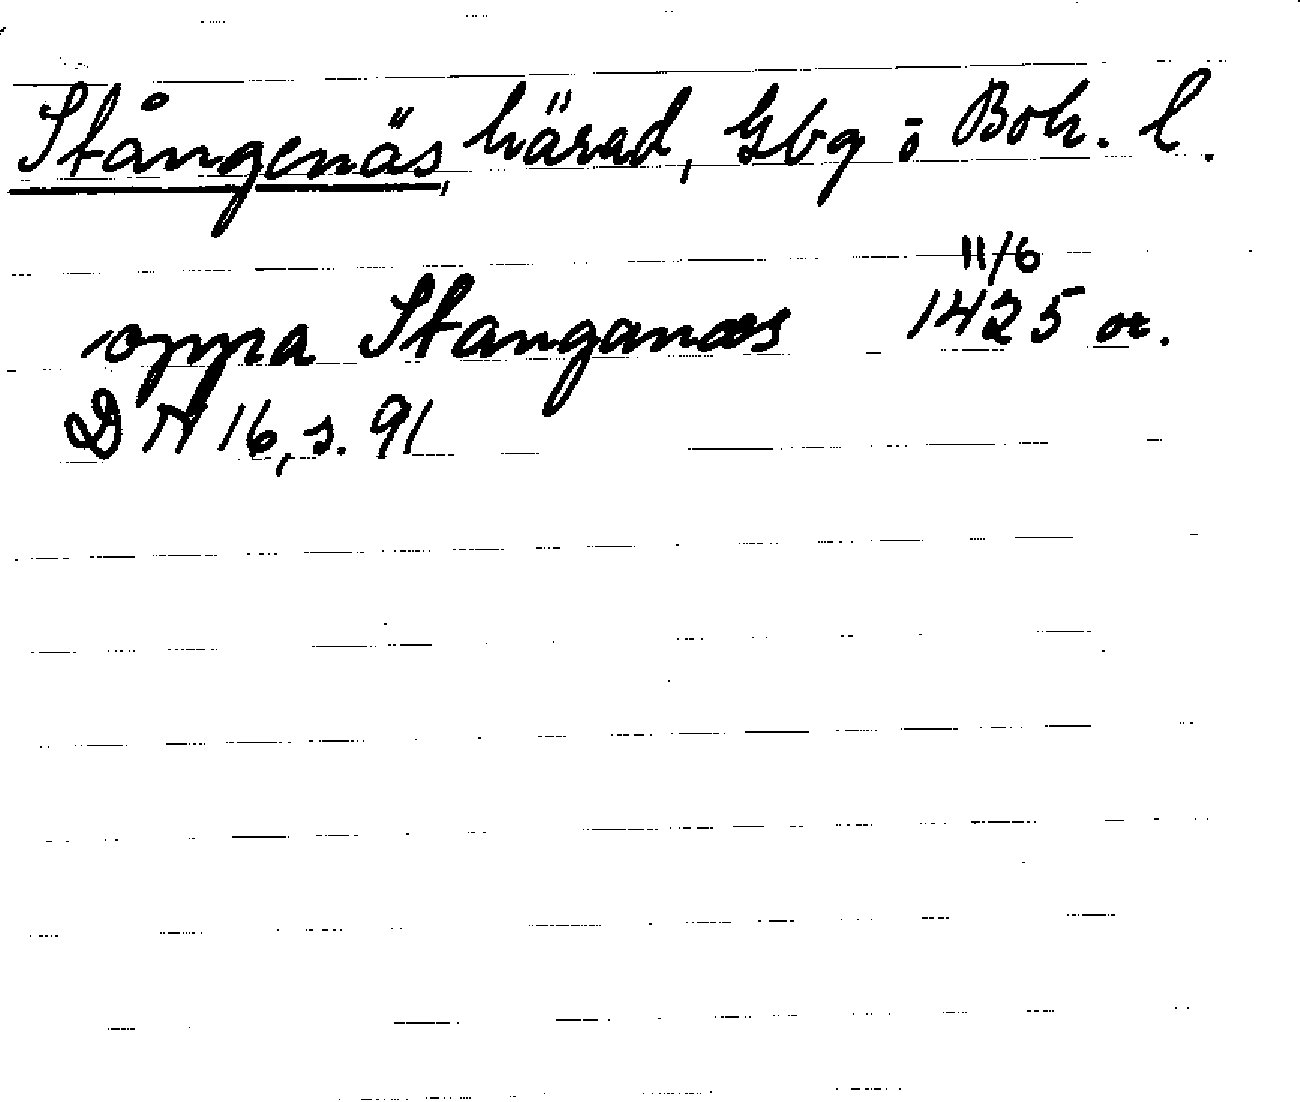 Stångenäs härad, Gbg ō Boh. l.
11/6
oppa Stanganæs 1425 or.
DN 16, s. 91